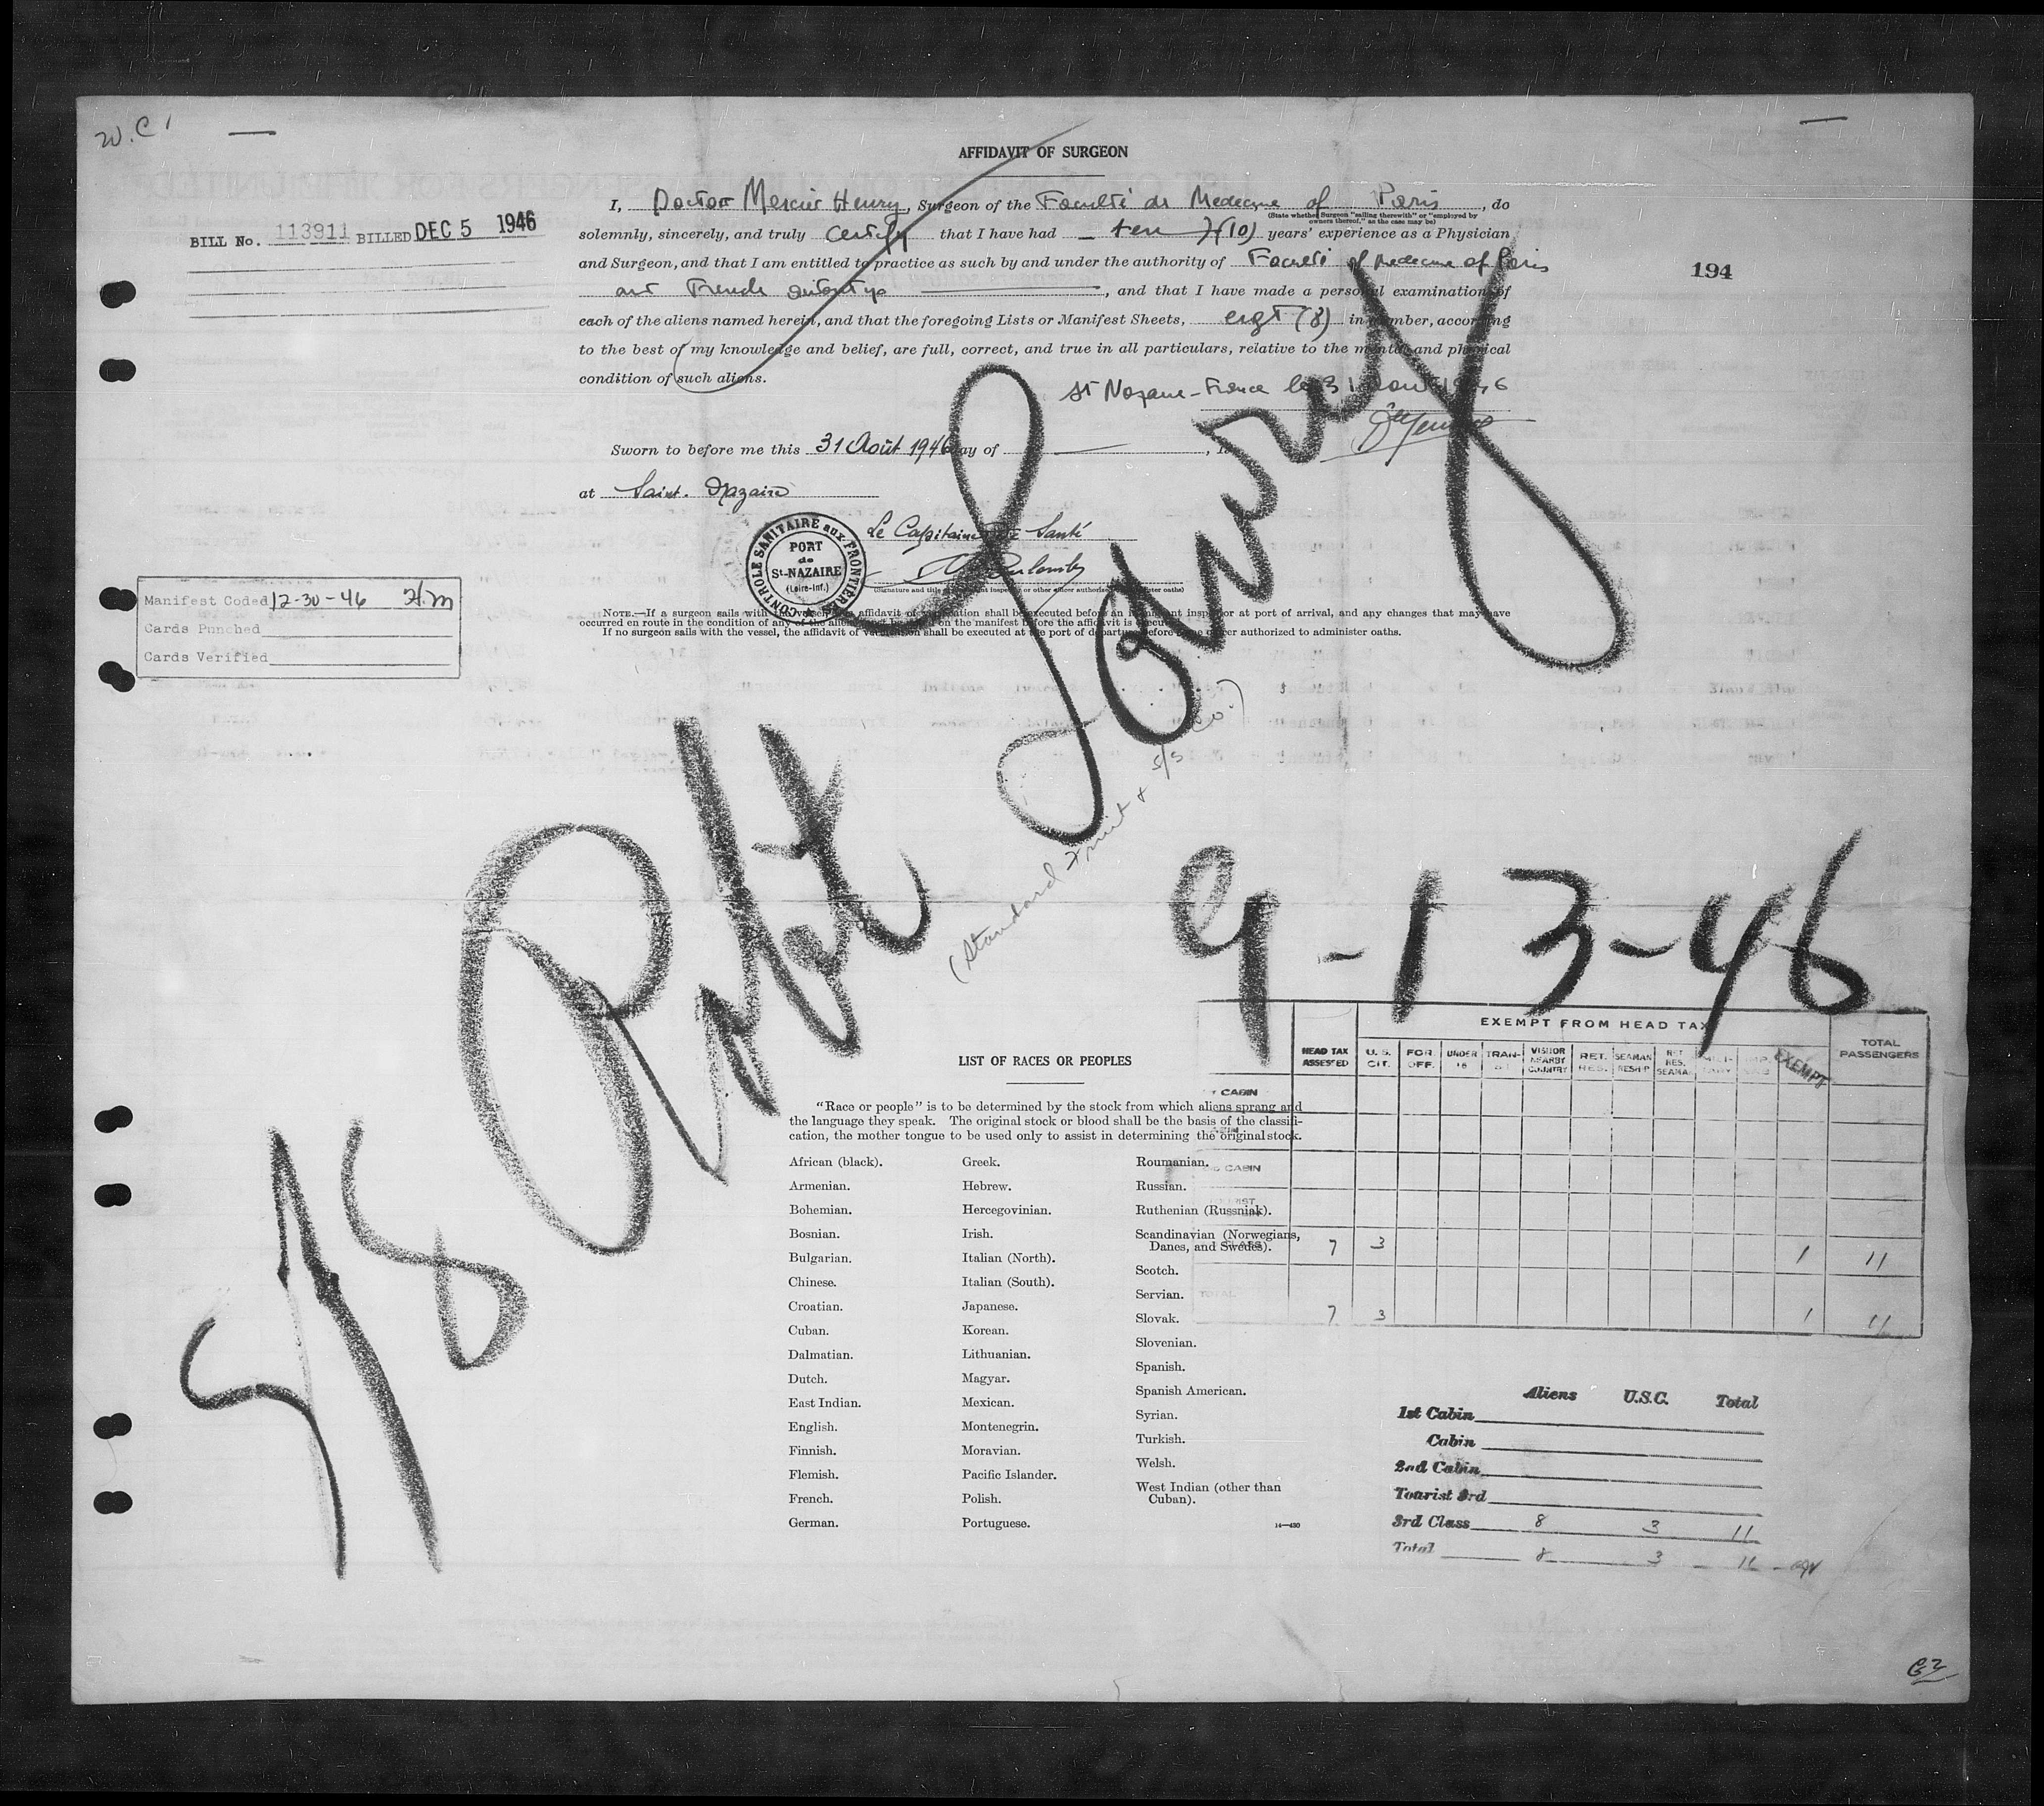 W.C.
AFFIDAVIT OF SURGEON
BILL No. 113911 BILLED DEC 5 1946
194
I, Doctor Mercier Henry, Surgeon of the Faculté de Medecine of Paris, do
(State whether Surgeon "sailing therewith" or "employed by
owners thereof," as the case may be)
solemnly, sincerely, and truly certify that I have had ten (10) years' experience as a Physician
and Surgeon, and that I am entitled to practice as such by and under the authority of Faculté of Medecine of Paris
and French, and that I have made a personal examination of
each of the aliens named herein, and that the foregoing Lists or Manifest Sheets, eigt (8) in number, according
to the best of my knowledge and belief, are full, correct, and true in all particulars, relative to the mental and physical
condition of such aliens.
St Nazaire-France le 31 Aout 1946
Sworn to before me this 31 Août 1946 day of , 19
at Saint. Nazaire
CONTROLE SANITAIRE aux FRONTIERES
PORT
de
St-NAZAIRE
(Loire-Inf.)
Le Capitaine de Santé
(Signature and title of immigrant inspector or other officer authorized to administer oaths)
NOTE.—If a surgeon sails with the vessel, the affidavit of verification shall be executed before an immigrant inspector at port of arrival, and any changes that may have
occurred en route in the condition of any of the aliens must be noted on the manifest before the affidavit is executed.
If no surgeon sails with the vessel, the affidavit of verification shall be executed at the port of departure before some officer authorized to administer oaths.
Manifest Coded 12-30-46 H.M
Cards Punched
Cards Verified
S/S Robt Lowry
(Standard Fruit & S/S Co.)
9-13-46
EXEMPT FROM HEAD TAX
HEAD TAX ASSESSED
U.S. CIT.
FOR OFF.
UNDER 16
TRAN-
VISITOR NEARBY COUNTRY
RET. RES.
SEAMAN RESHIP
RET RES. SEAMAN
EXEMPT
TOTAL PASSENGERS
CABIN
CABIN
CLASS 7 3 1 11
TOTAL 7 3 1 11
LIST OF RACES OR PEOPLES
"Race or people" is to be determined by the stock from which aliens sprang and
the language they speak. The original stock or blood shall be the basis of the classifi-
cation, the mother tongue to be used only to assist in determining the original stock.
African (black).
Armenian.
Bohemian.
Bosnian.
Bulgarian.
Chinese.
Croatian.
Cuban.
Dalmatian.
Dutch.
East Indian.
English.
Finnish.
Flemish.
French.
German.
Greek.
Hebrew.
Hercegovinian.
Irish.
Italian (North).
Italian (South).
Japanese.
Korean.
Lithuanian.
Magyar.
Mexican.
Montenegrin.
Moravian.
Pacific Islander.
Polish.
Portuguese.
Roumanian.
Russian.
Ruthenian (Russniak).
Scandinavian (Norwegians,
Danes, and Swedes).
Scotch.
Servian.
Slovak.
Slovenian.
Spanish.
Spanish American.
Syrian.
Turkish.
Welsh.
West Indian (other than
Cuban).
14—430
Aliens U.S.C. Total
1st Cabin
Cabin
2nd Cabin
Tourist 3rd
3rd Class 8 3 11
Total 8 3 11